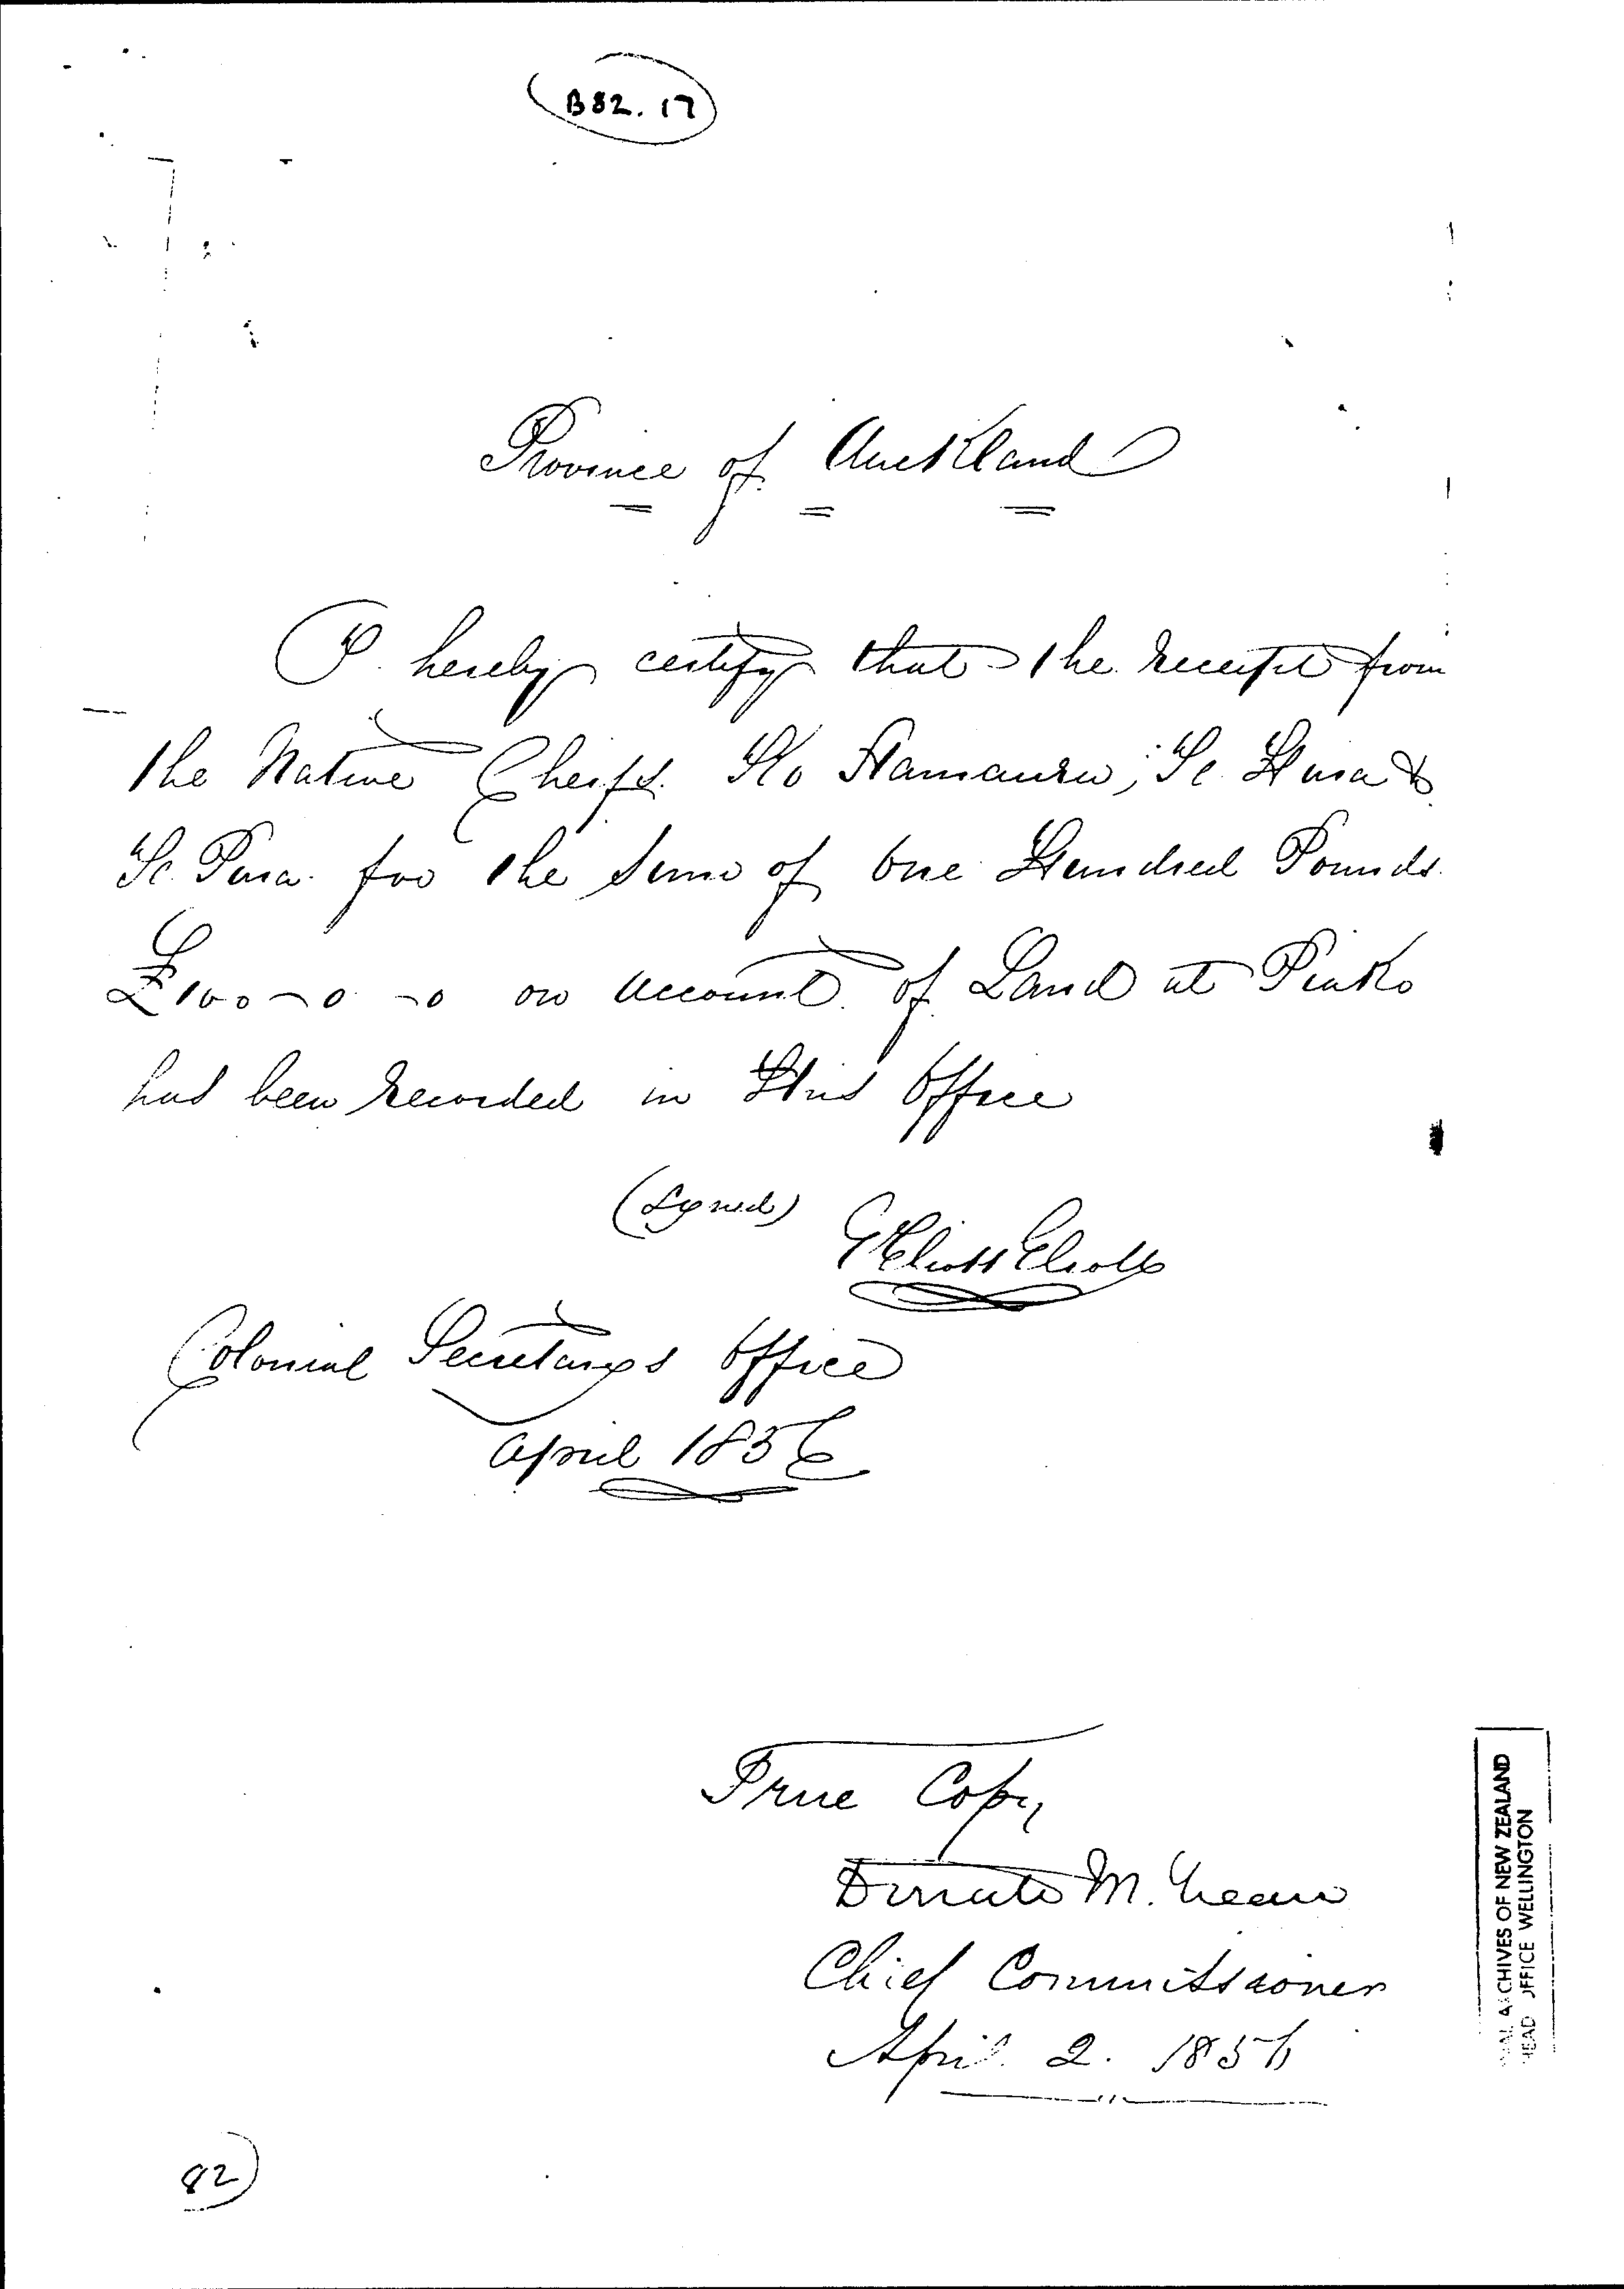 B82.17
Province of Auckland
I hereby certify that the receipt from
the Native Cheifs. Ko Hamauru; Te Hura &
Te Pura. for the Sum of One Hundred Pounds.
£100-0-0 on account of Land at Piako
has been recorded in this Office
(Signed)
G Eliott Eliott
Colonial Secretarys Office
April 1856
True Copy
Donald McLean
Chief Commissioner
April 2. 1856
82
ARCHIVES OF NEW ZEALAND
HEAD OFFICE WELLINGTON